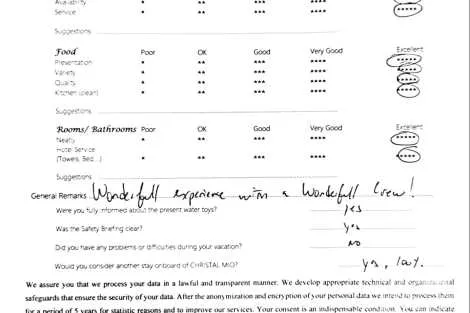 Availability * ** *** **** *****
Service * ** *** **** *****
Suggestions
Food Poor OK Good Very Good Excellent
Presentation * ** *** **** *****
Variety * ** *** **** *****
Quality * ** *** **** *****
Kitchen (clean) * ** *** **** *****
Suggestions
Rooms/ Bathrooms Poor OK Good Very Good Excellent
Neaty * ** *** **** *****
Hotel Service
(Towels, Bed...) * ** *** **** *****
Suggestions
General Remarks Wonderfull experience with a Wonderfull Crew!
Were you fully informed about the present water toys? yes
Was the Safety Briefing clear? yes
Did you have any problems or difficulties during your vacation? NO
Would you consider another stay onboard of CHRISTAL MIO? yes, 100%.
We assure you that we process your data in a lawful and transparent manner. We develop appropriate technical and organizational
safeguards that ensure the security of your data. After the anonymization and encryption of your personal data we intend to process them
for a period of 5 years for statistic reasons and to improve our services. Your consent is an indispensable condition. You can indicate